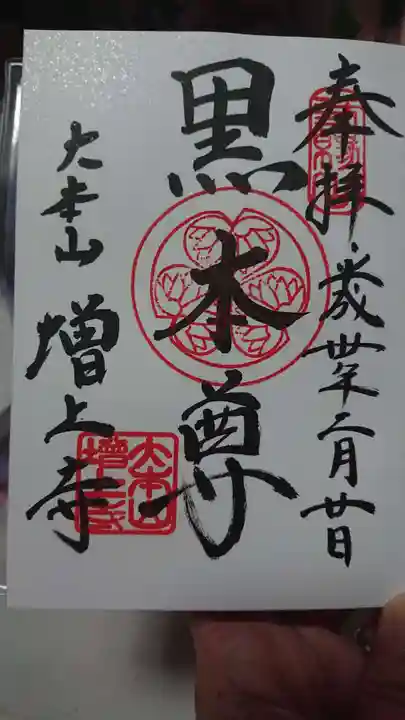 奉拝・歳卅年二月廿日
黒本尊
大本山
増上寺
大本山
増上寺